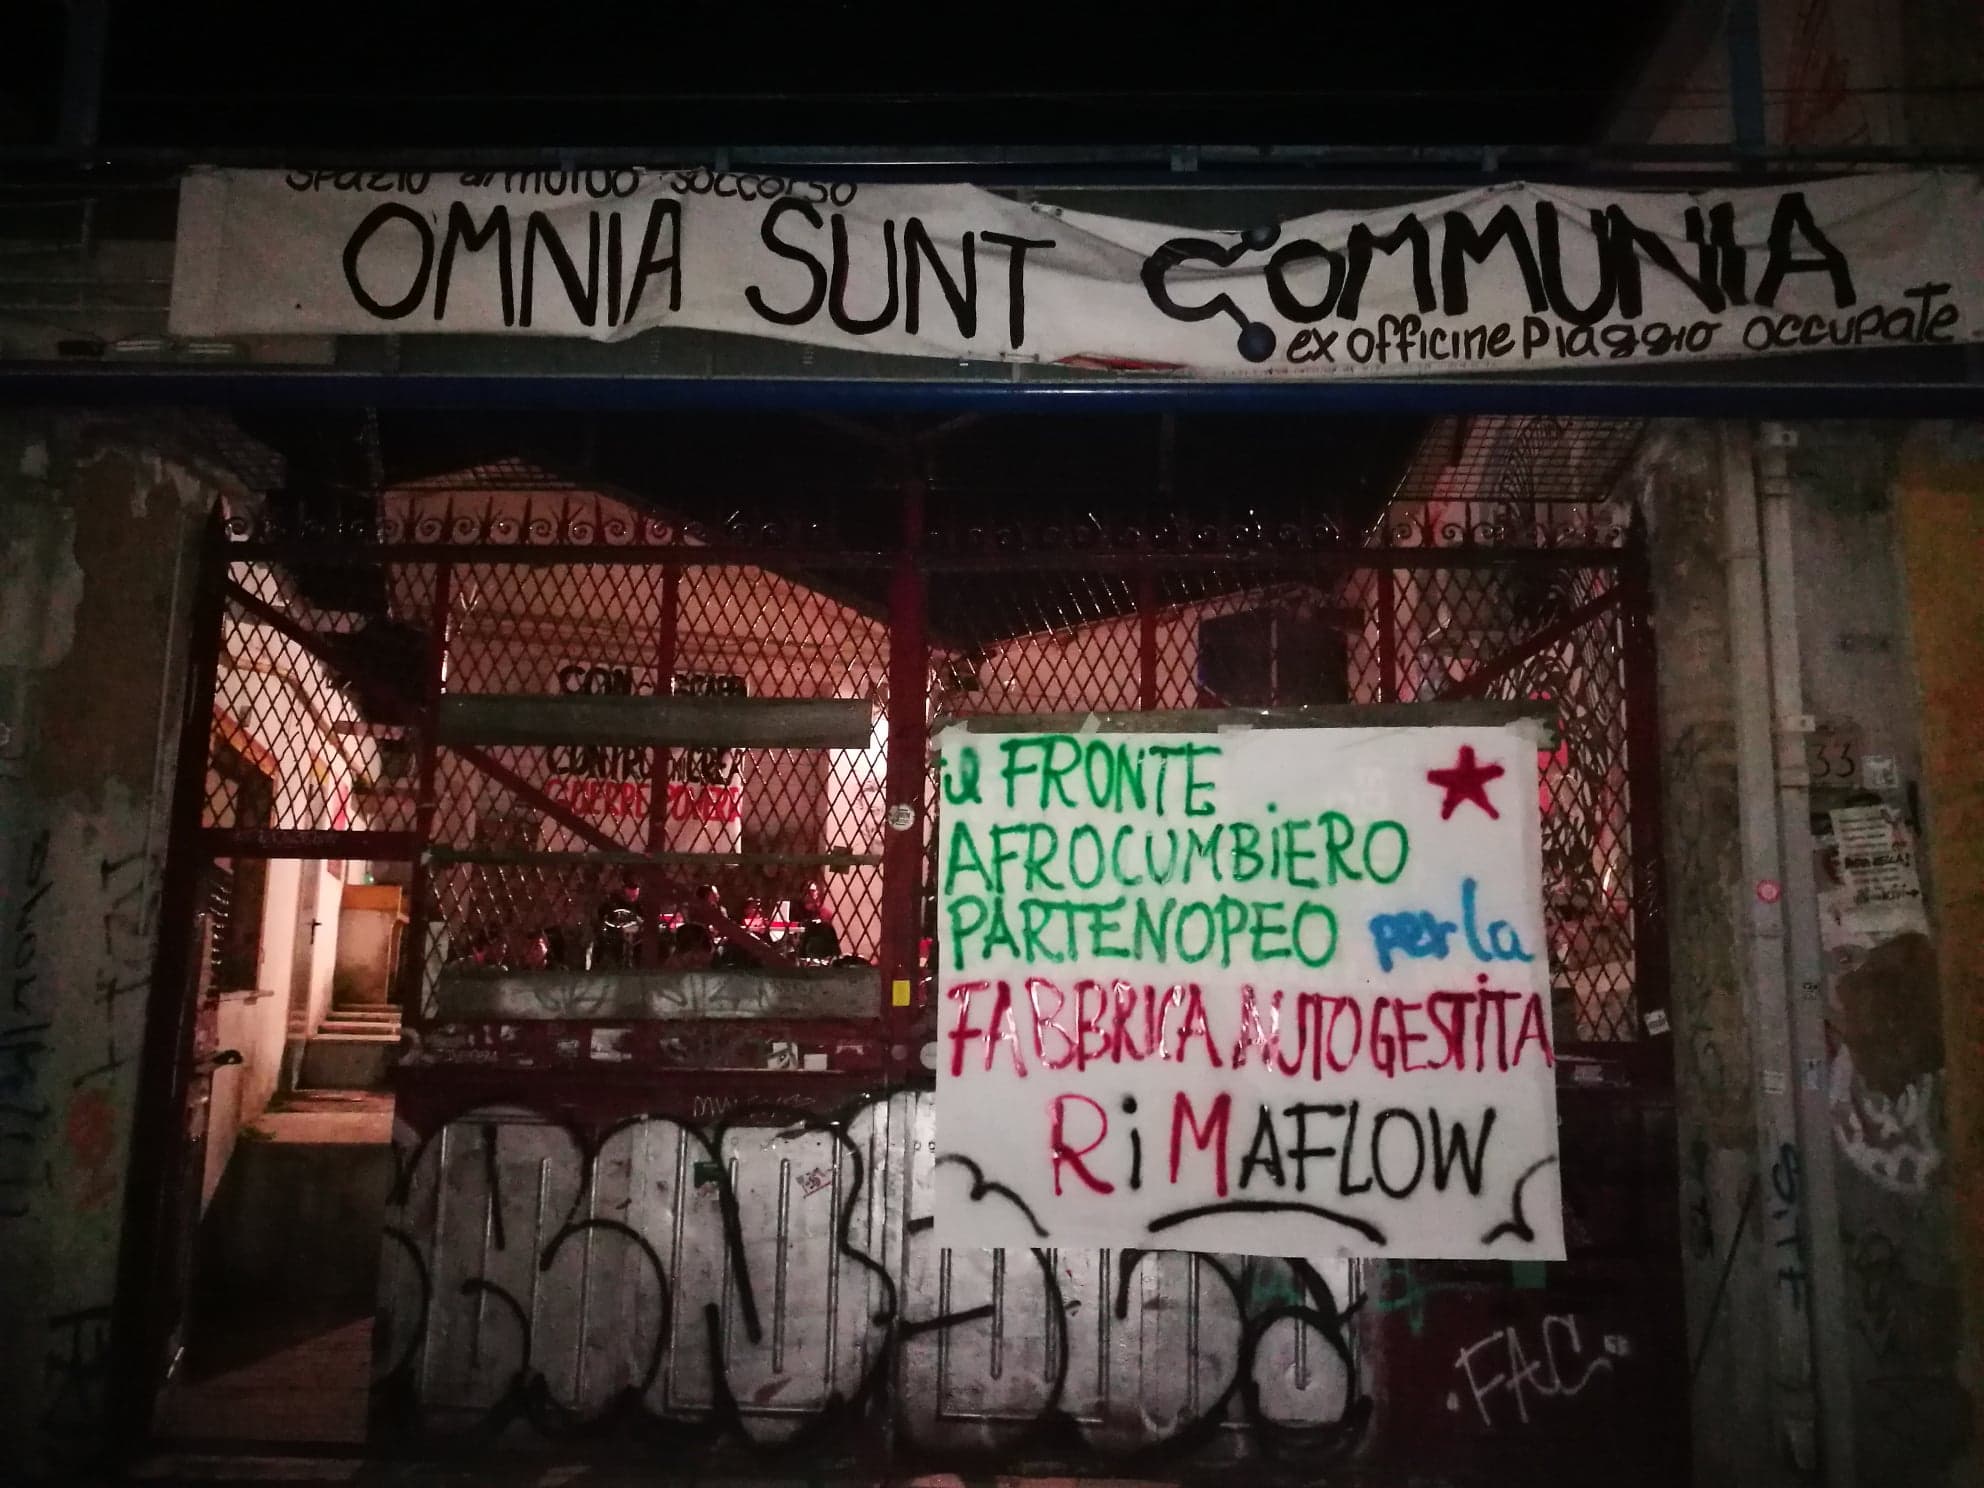 spazio di mutuo soccorso
OMNIA SUNT COMMUNIA
ex officine Piaggio occupate
CONTRO
GUERRE
il FRONTE
AFROCUMBiERO
PARTENOPEO per la
FABBRICA AUTOGESTiTA
RiMAFLOW
33
FAC